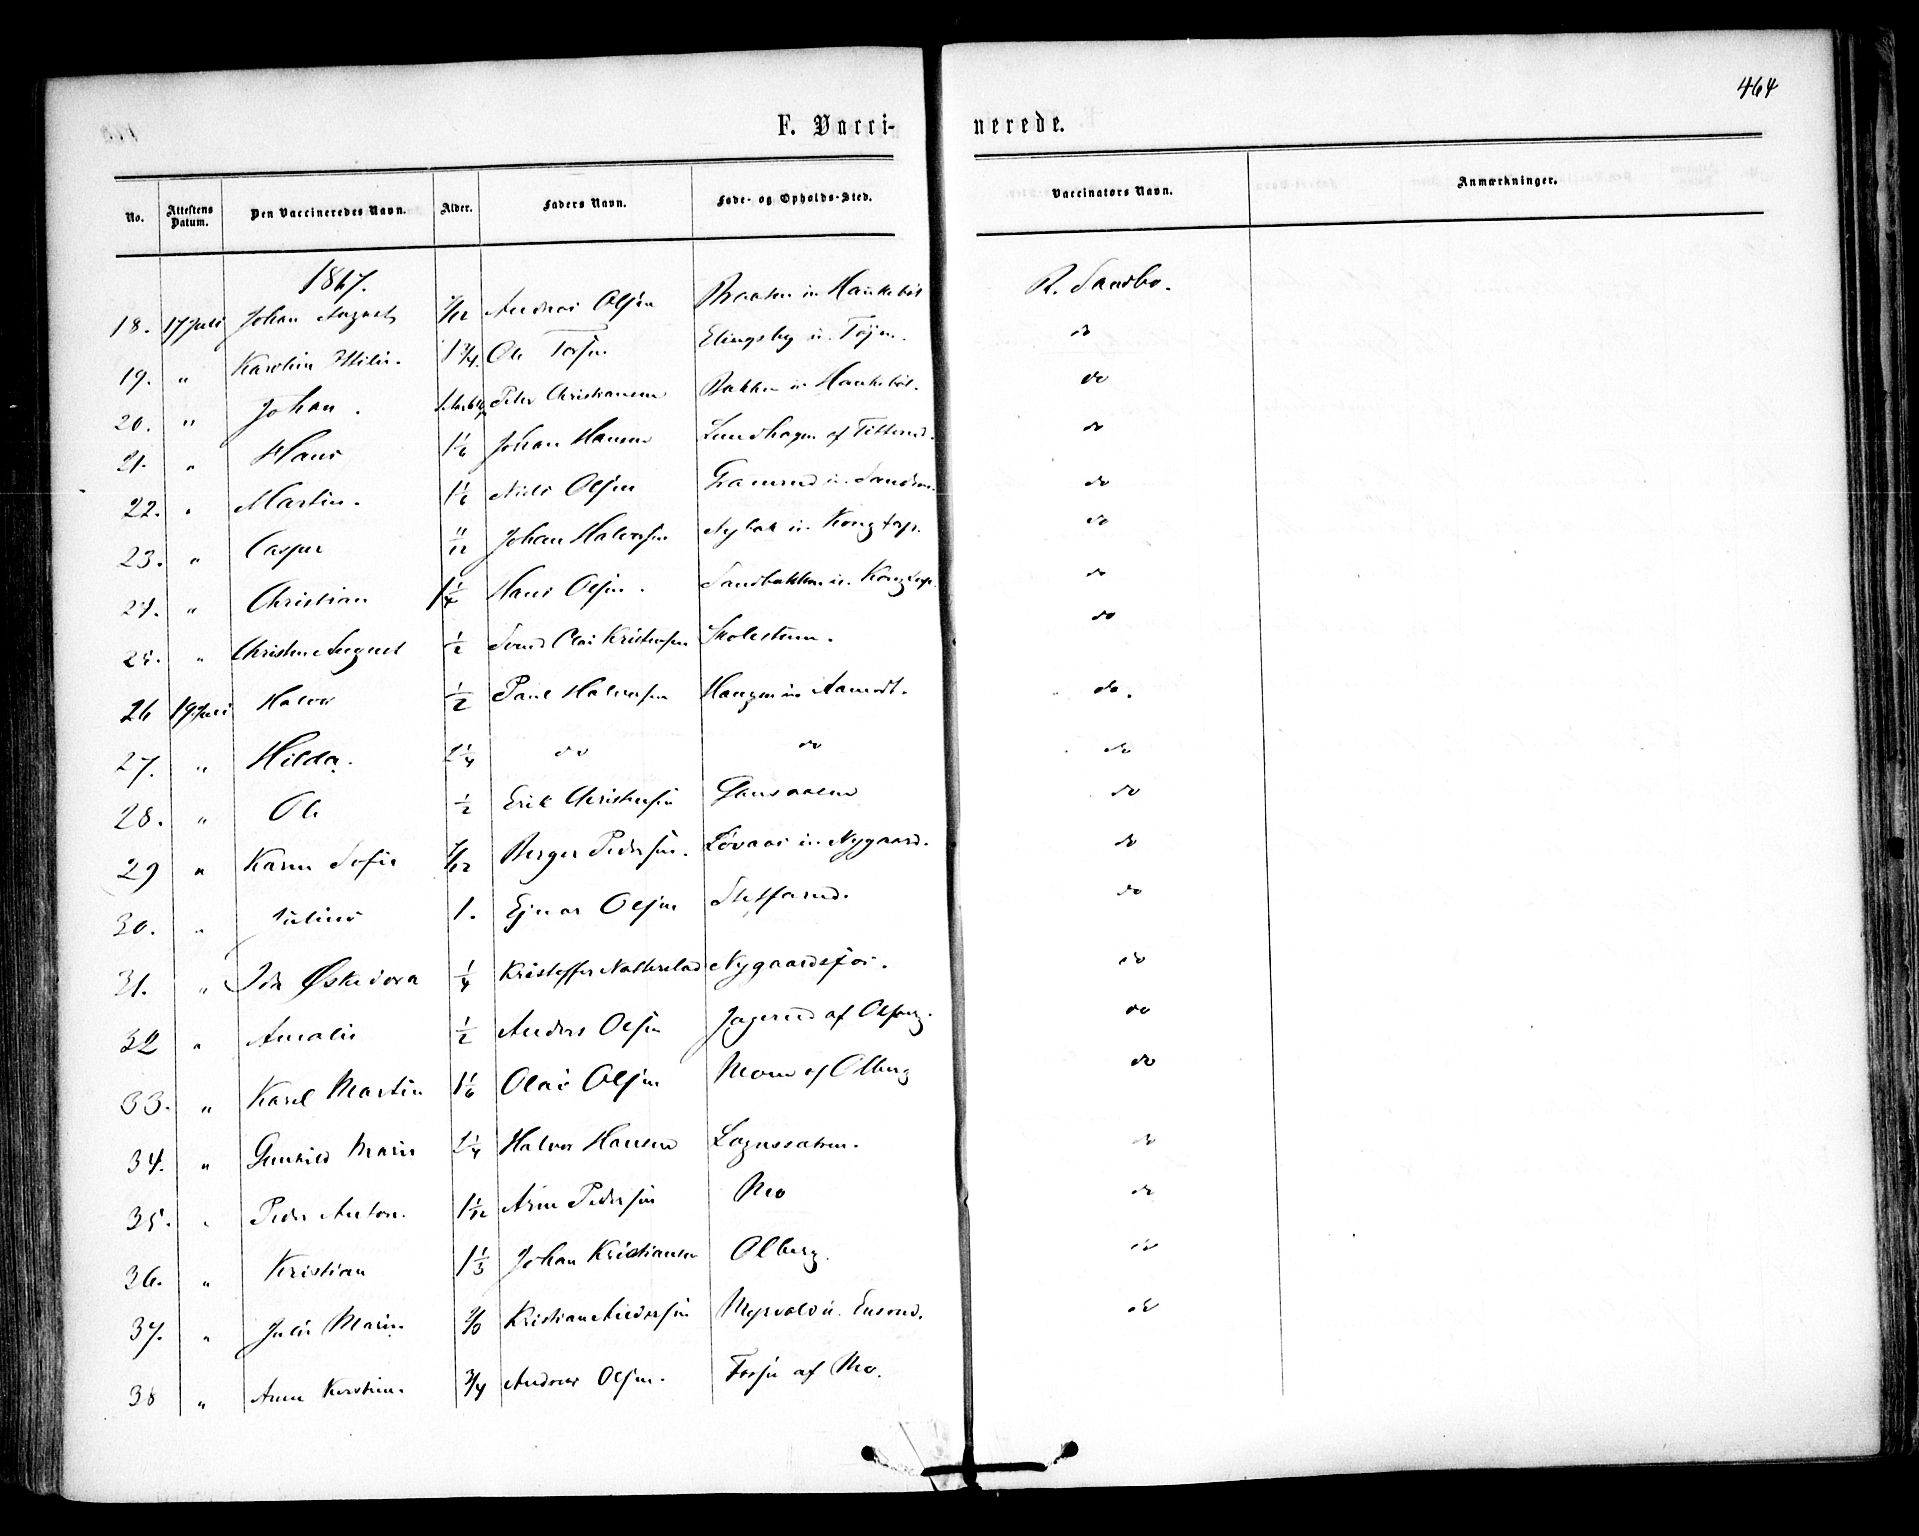 464
F. Vacci-nerede.
No. Attestens Datum. Den Vaccineredes Navn. Alder. Faders Navn. Føde- og Opholds-Sted. Vaccinators Navn. Anmærkninger.
1867.
18. 17 Juli Johan August Andreas Olsen Braaten in Haukebøl R. Sandbo.
19. " Karolin 1 3/4. Ole Elingsby u. Tøjen. do
20. " Johan. Peter Christiansen Bakken u. Haukebøl. do
21. " Hans 1 1/6 Johan Hansen Lundhagen af do
22. " Martin. 1 1/6 Niels Olsen do
23. " Casper 11/12 Johan Halvorsen u. Kongtorp. do
24. " Christian 1 1/4 Hans Olsen. Sandbakken u. Kongtorp. do
25. " Christine August 1/2 Svend Olai Kristensen Skolestuen. do
26 19 Juli Halvor 1/2 Paul Halvorsen Haugen in Aamodt. do.
27. " Hilda. 2 1/4 do do do
28. " Ole 1/2 Erik Christensen do
29 " Karen Sofie 7/12 Berger Pedersen. Løvaas in Nygaard. do
30. " Julius 1. Ejnar Olsen do
31. " Ida Øskedora 1/4 Kristoffer Nygaardsjor. do
32 " Amalie 1/2 Anders Olsen af do
33. " Karl Martin 1 1/6 Olai Olsen Moen af Olberg do
34. " Gunhild Marie 2 1/4 Halvor Hansen do
35. " Peder Anton. 1 1/12 Arne Pedersen Mo do
36. " Kristian 1 1/3 Johan Kristiansen Olberg. do
37. " Julie Marie. Kristian Andersen Myrvold u. do
38 " Anne Kirstine. 3/4 Andreas Olsen. af Mo.